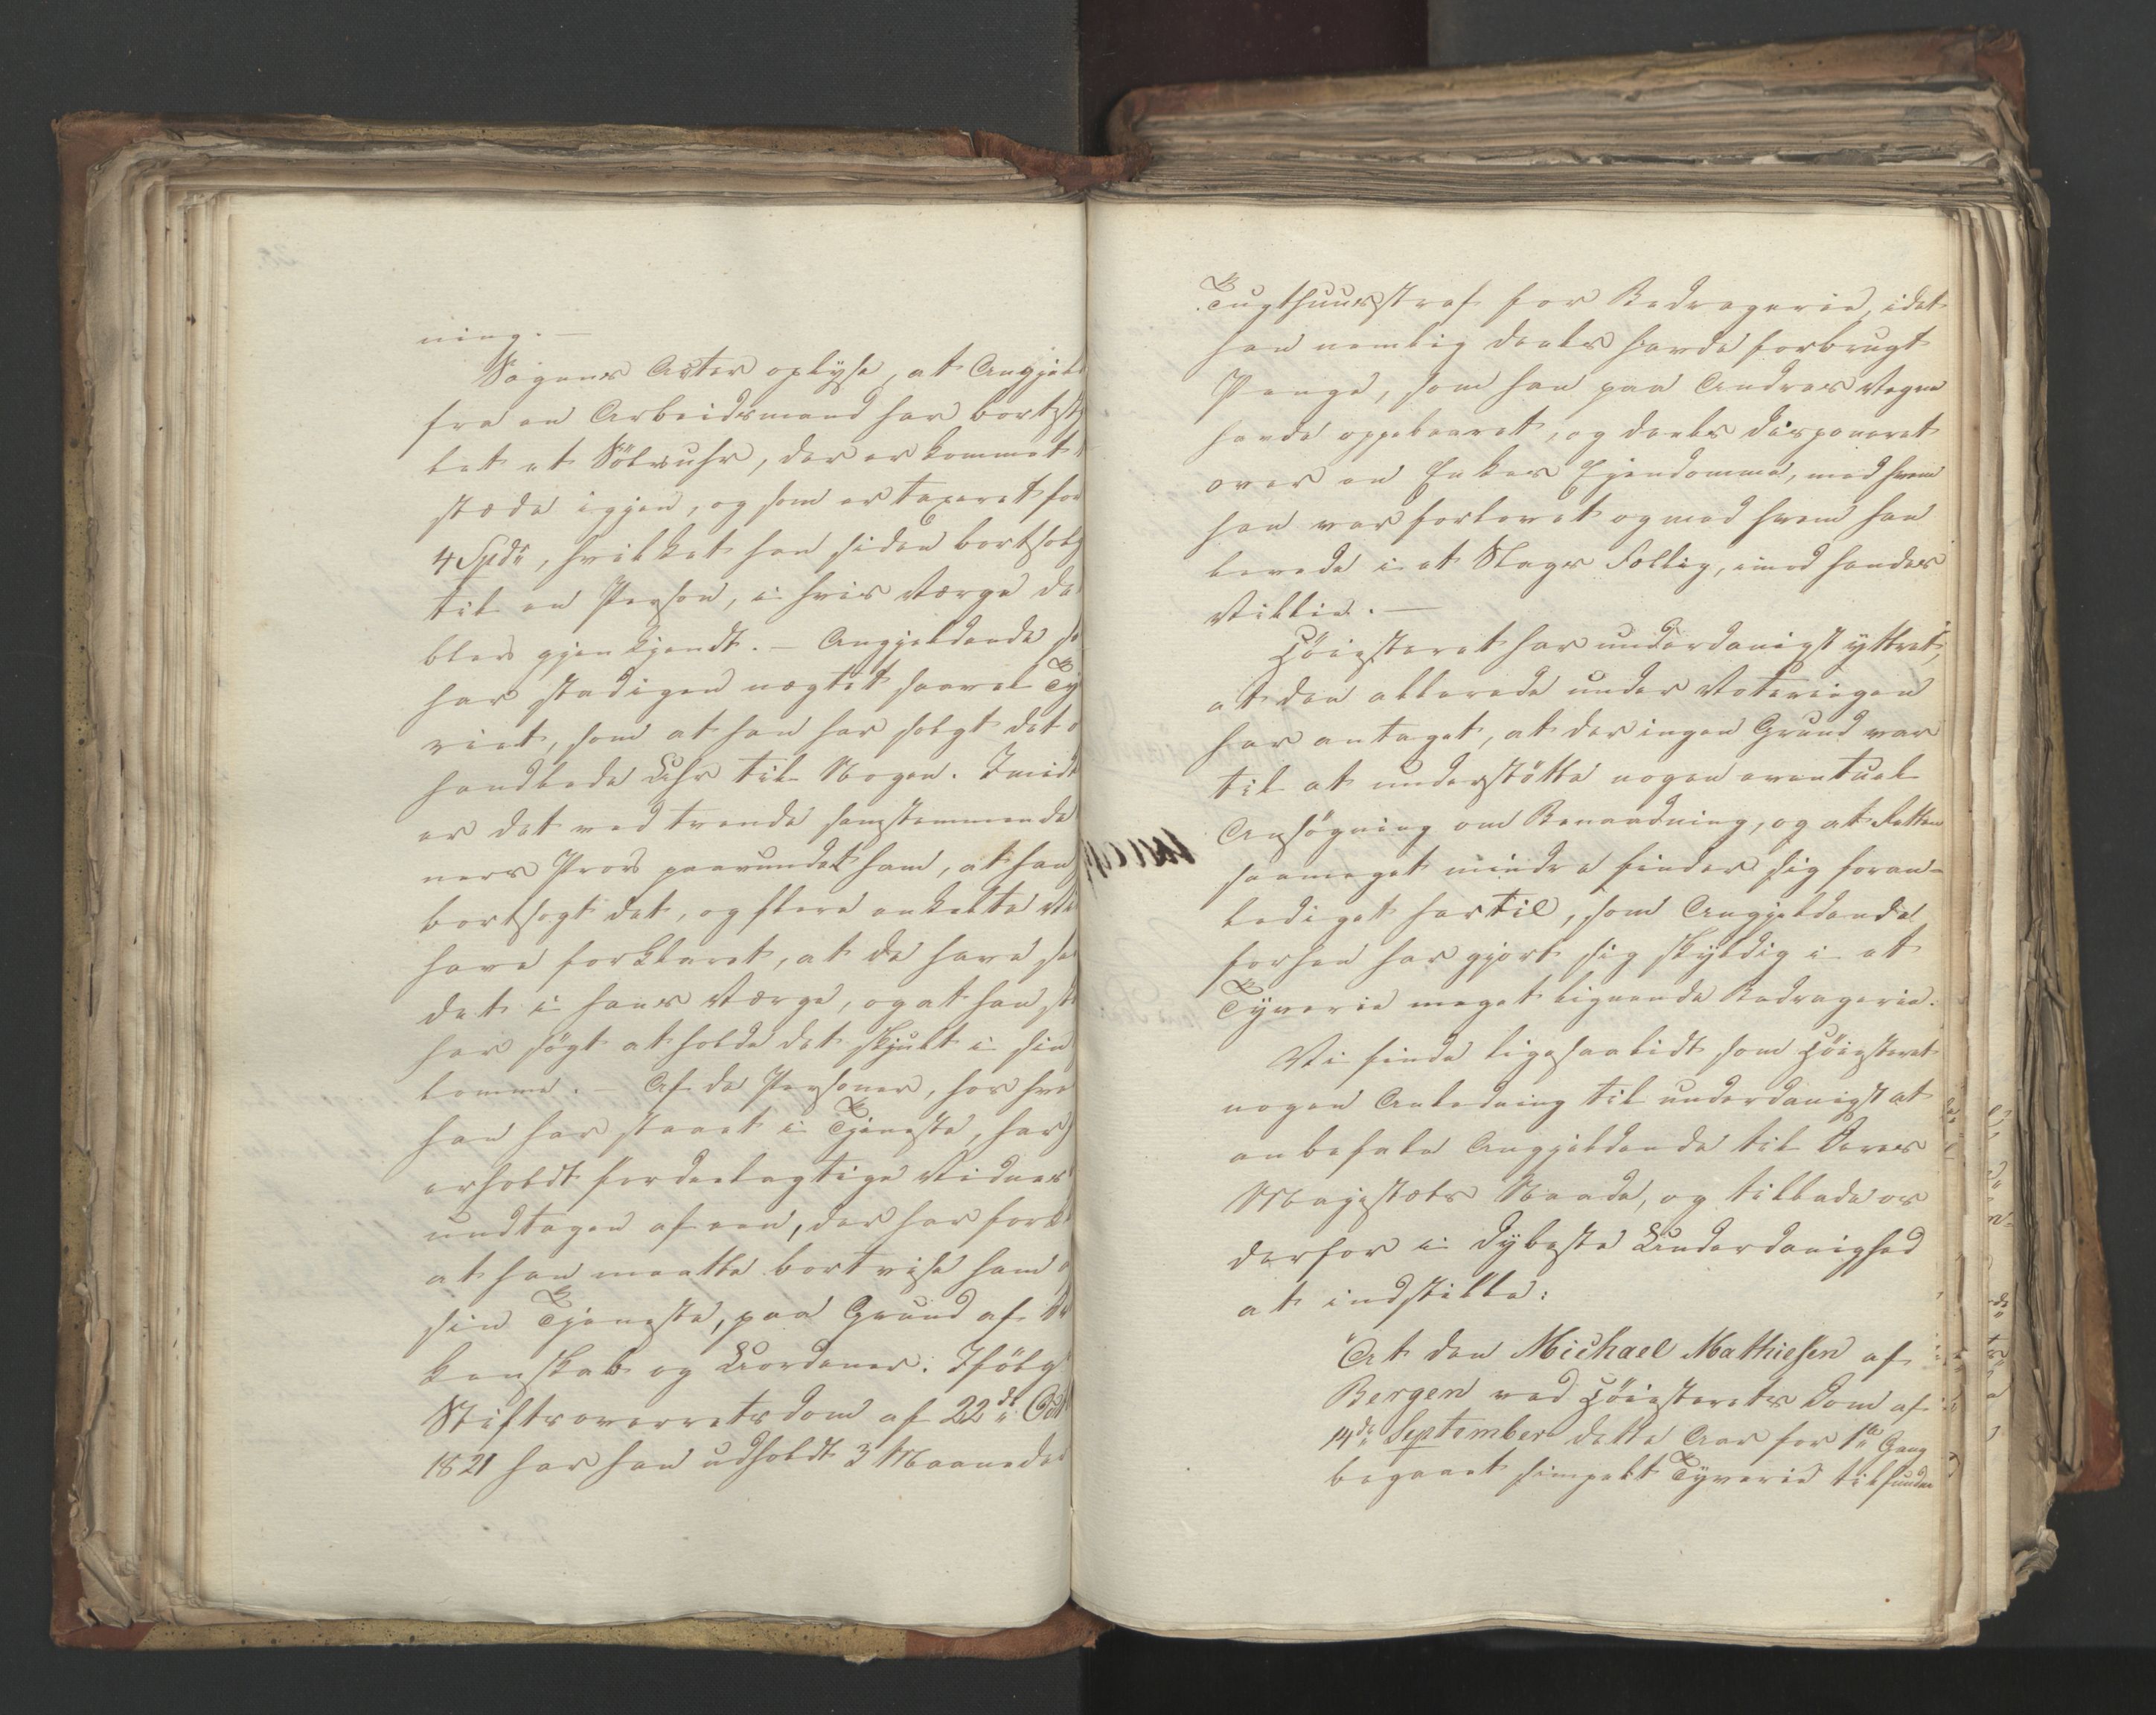 ning. —
Sagens Acter oplyse, at Angjel
fra en Arbeidsmand har bortstj
let et Sölvuhr, der er kommet t
stæde igjen, og som er taxeret for
4 Spd, hvilket han siden bortsolg
til en Person, i hvis Værge de
blev gjenkjendt. — Angjeldende s
har stadigen nægtet saavel Ty
riet, som at han har solgt det o
handlede Uhr til Nogen. Imidl
er det ved tvende samstemmende
ners Prov paavundet ham, at han
bortsogt det, og flere enkelte Vi
have forklaret, at de have se
det i hans Værge, og at han st
har sögt at holde det skjult i sin
lomme. — Af de Personer, hos hve
han har staaet i Tjeneste, har
erholdt fordeelagtige Vidnes
undtagen af een, der har fork
at han maatte bortvise ham a
sin Tjeneste, paa Grund af
kenskab og Uordener. Ifölg
Stiftsoverretsdom af 22de Oct
1821 har han udholdt 3 Maaneder
Tugthuusstraf for Bedragerie, idet
han nemlig deels havde forbrugt
Penge, som han paa Andres Vegne
havde oppebaaret, og deels disponeret
over en Enkes Ejendomme, med hvem
han var forlovet og med hvem han
levede i et Slags Fællig, imod hendes
Villie. —
Höiesteret har underdanigst yttret,
at den allerede under Voteringen
har antaget, at der ingen Grund var
til at understötte nogen eventuel
Ansögning om Benaadning, og at Retten
saameget mindre finder sig foran-
lediget hertil, som Angjeldende
forhen har gjort sig skyldig i et
Tyverie meget lignende Bedragerie.
Vi finde ligesaalidt som Höiesteret
nogen Anledning til underdanigst at
anbefale Angjeldende til Deres
Majestæts Naade, og tillade os
derfor i dybeste Underdanighed
at indstille:
At den Michael Mathiesen af
Bergen ved Höiesterets Dom af
14de September dette Aar for 1ste Gang
begaaet simpelt Tyverie tilfundne